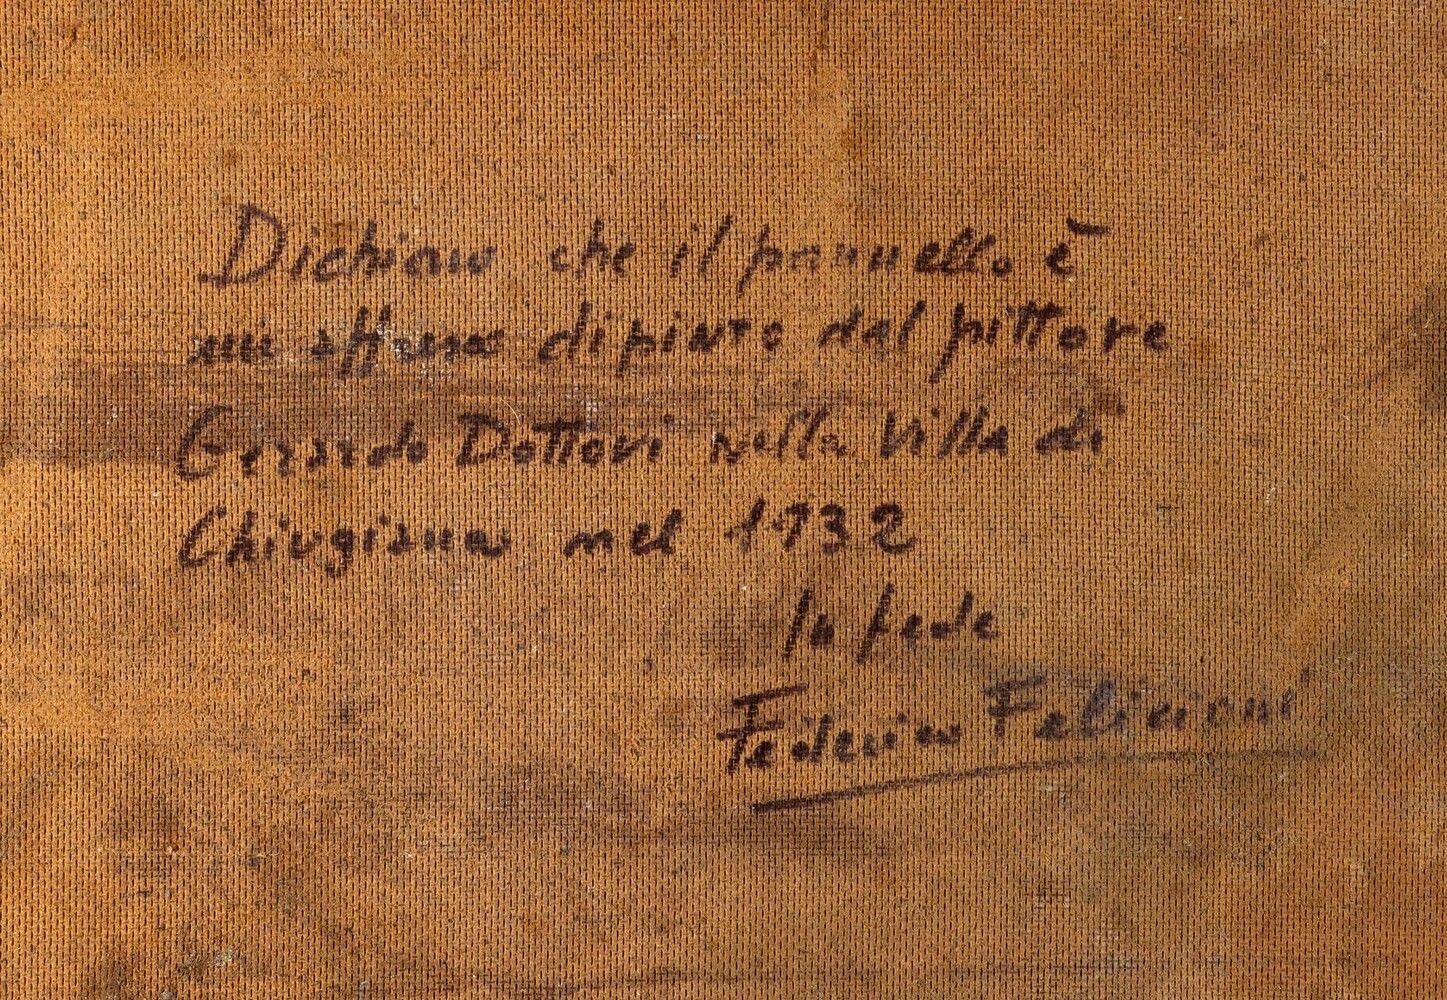 Dichiaro che il pannello è
dipinto dal pittore
Gerardo Dottori nella Villa di
Chiugiana nel 1932
In fede
Federico Felicioni